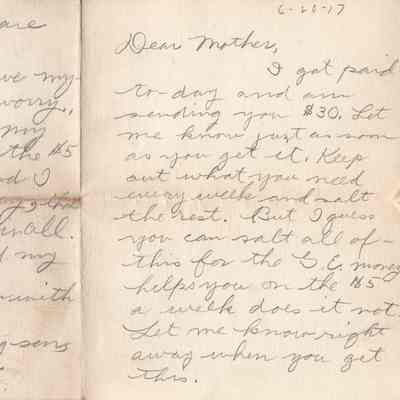 are
ve my
worry,
my
the $5
d I
in all.
d my
with
sons
6-20-17
Dear Mother,
I got paid
to-day and am
sending you $30. Let
me know just as soon
as you get it. Keep
out what you need
every week and salt
the rest. But I guess
you can salt all of
this for the G. E. money
helps you on the $5
a week does it not.
Let me know right
away when you get
this.